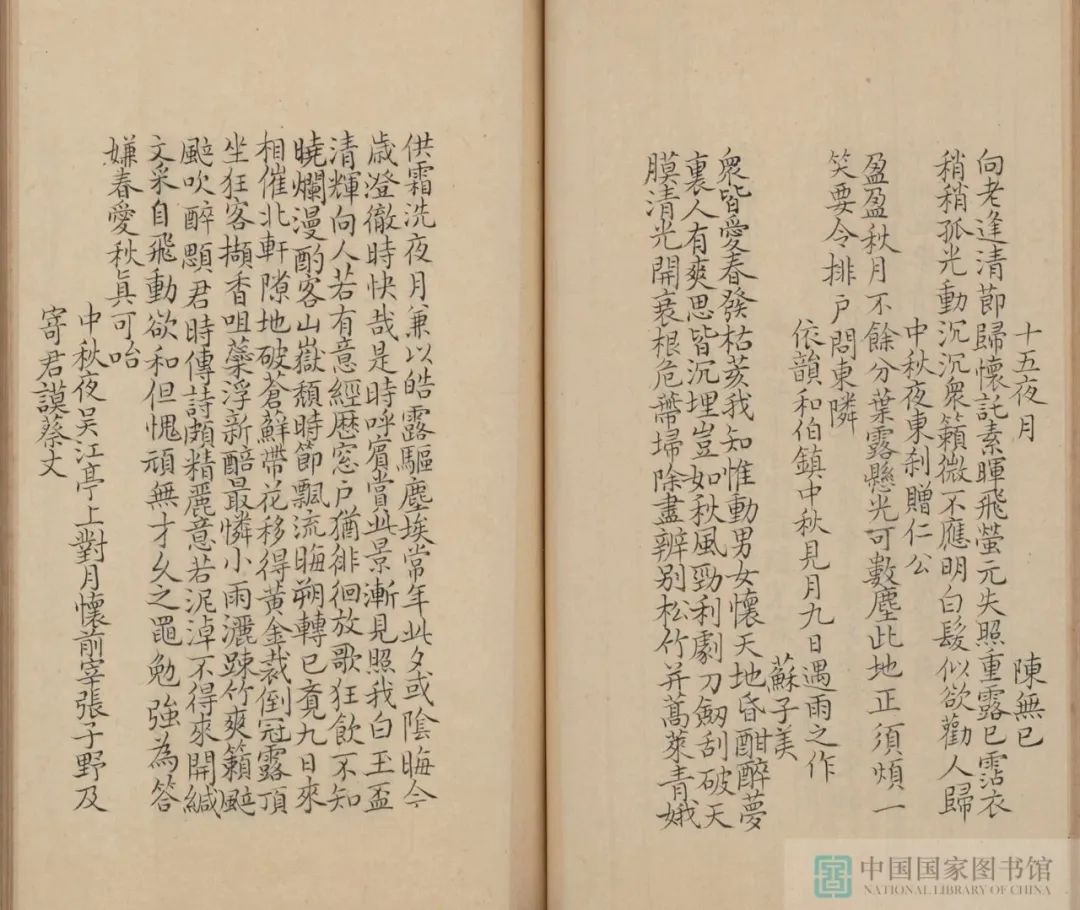 十五夜月　陳無已
向老逢清節歸懷託素暉飛螢元失照重露已霑衣
稍稍孤光動沉沉衆籟微不應明白髮似欲勸人歸
中秋夜東刹贈仁公
盈盈秋月不餘分葉露懸光可數塵此地正須煩一
笑要令排户問東隣
依韻和伯鎮中秋見月九日遇雨之作
蘇子美
衆皆愛春發枯荄我知惟動男女懷天地昏酣醉夢
裏人有爽思皆沉埋豈如秋風勁利劇刀劒刮破天
膜清光開衰根危蔕埽除盡辨别松竹并蒿萊青娥
供霜洗夜月兼以皓露驅塵埃常年此夕或陰晦今
歲澄徹時快哉是時呼賓賞此景漸見照我白玉盃
清輝向人若有意經歷窓户猶徘徊放歌狂飲不知
曉爛漫酌客山嶽頹時節飄流晦朔轉已竟九日來
相催北軒隙地破蒼蘚帶花移得黄金裁倒冠露頂
坐狂客擷香咀蘂浮新醅最憐小雨灑踈竹爽籟颼
颼吹醉顋君時傳詩頗精麗意若泥淖不得來開緘
文采自飛動欲和但愧頑無才久之黽勉強為答
嫌春愛秋真可咍
中秋夜吴江亭上對月懷前宰張子野及
寄君謨蔡丈
中国国家图书馆
NATIONAL LIBRARY OF CHINA